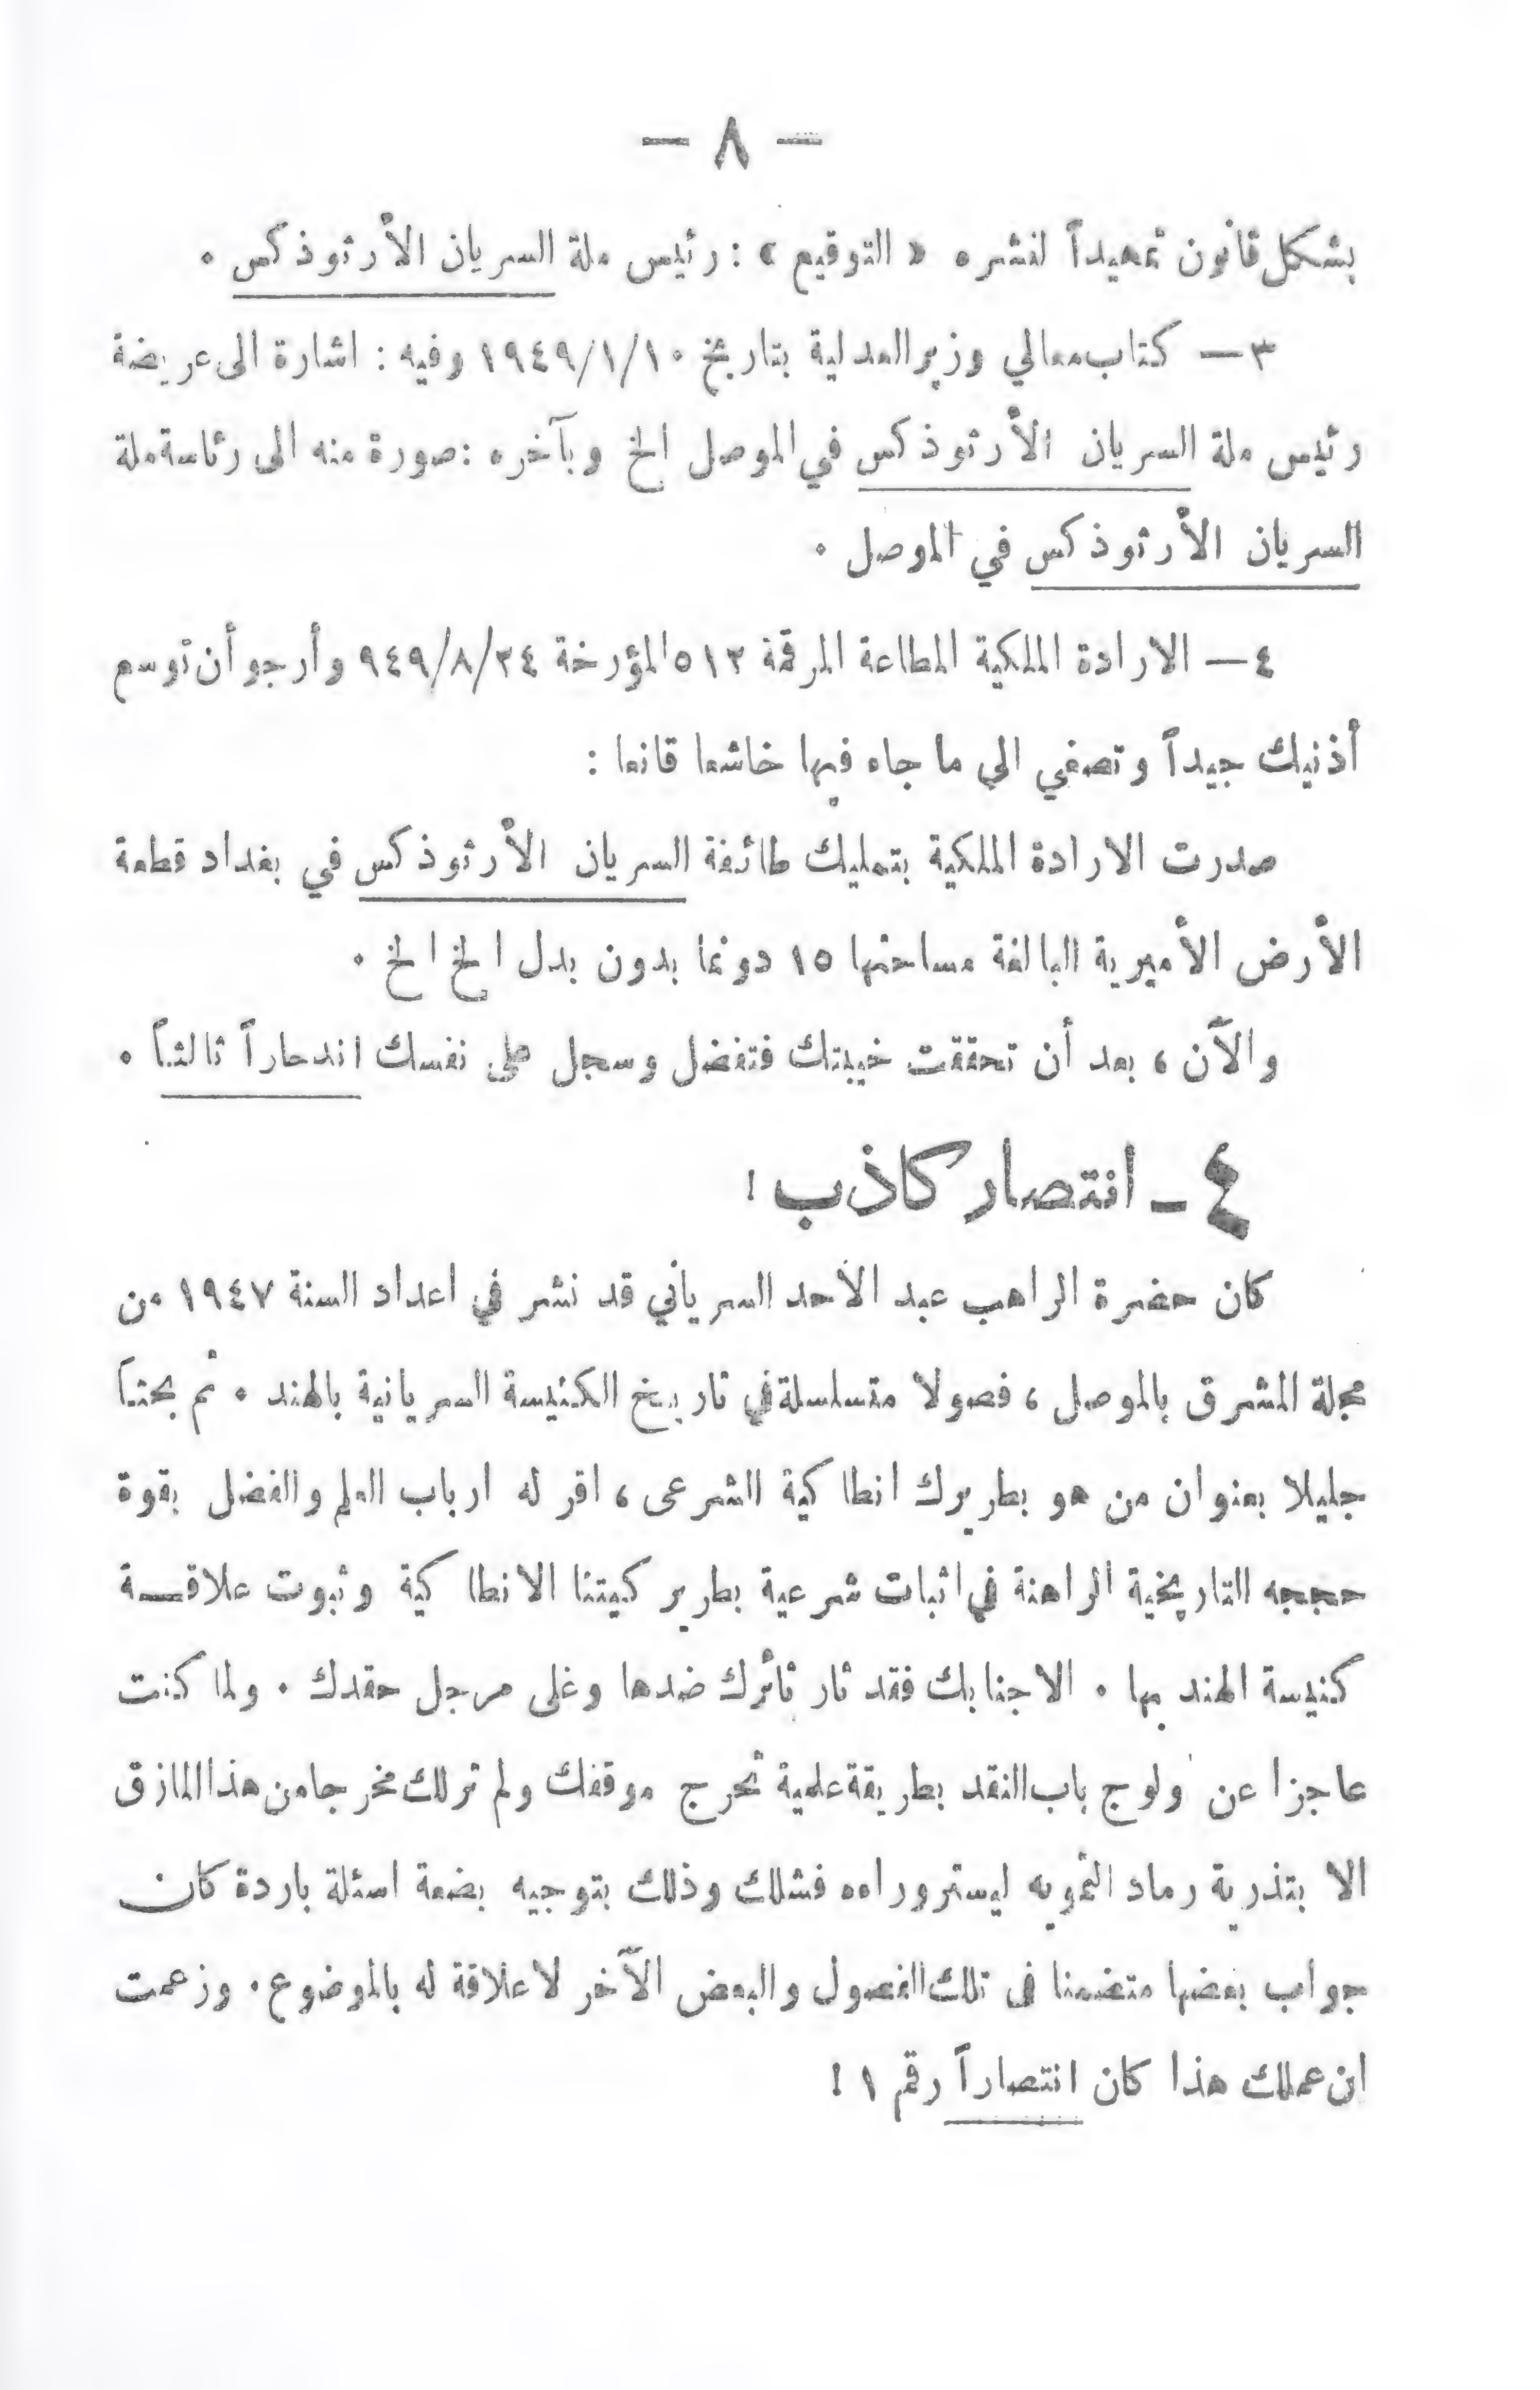 — ٨ —
بشكل قانون تمهيداً لنشره « التوقيع » : رئيس ملة السريان الأرثوذكس .
٣ — كتاب معالي وزير العدلية بتاريخ ١٩٤٩/١/١٠ وفيه : اشارة الى عريضة
رئيس ملة السريان الأرثوذكس في الموصل الخ وبآخره : صورة منه الى رئاسة ملة
السريان الأرثوذكس في الموصل .
٤ — الارادة الملكية المطاعة المرقمة ٥١٣ المؤرخة ٩٤٩/٨/٢٤ وأرجو أن توسع
أذنيك جيداً وتصغي الى ما جاء فيها خاشعا قانعا :
صدرت الارادة الملكية بتمليك طائفة السريان الأرثوذكس في بغداد قطعة
الأرض الأميرية البالغة مساحتها ١٥ دونما بدون بدل الخ الخ .
والآن ، بعد أن تحققت خيبتك فتفضل وسجل على نفسك اندحاراً ثالثاً .
٤ – انتصار كاذب !
كان حضرة الراهب عبد الأحد السرياني قد نشر في اعداد السنة ١٩٤٧ من
مجلة المشرق بالموصل ، فصولا متسلسلة في تاريخ الكنيسة السريانية بالهند . ثم بحثاً
جليلا بعنوان من هو بطريرك انطاكية الشرعى ، اقر له ارباب العلم والفضل بقوة
حججه التاريخية الراهنة في اثبات شرعية بطريركيتنا الانطاكية وثبوت علاقة
كنيسة الهند بها . الا جنابك فقد ثار ثأرك ضدها وغلى مرجل حقدك . ولما كنت
عاجزا عن ولوج باب النقد بطريقة علمية تحرج موقفك ولم تر لك مخرجا من هذا المازق
الا بتذرية رماد التمويه ليستر وراءه فشلك وذلك بتوجيه بضعة اسئلة باردة كان
جواب بعضها متضمنا فى تلك الفصول والبعض الآخر لا علاقة له بالموضوع . وزعمت
ان عملك هذا كان انتصاراً رقم ١ !